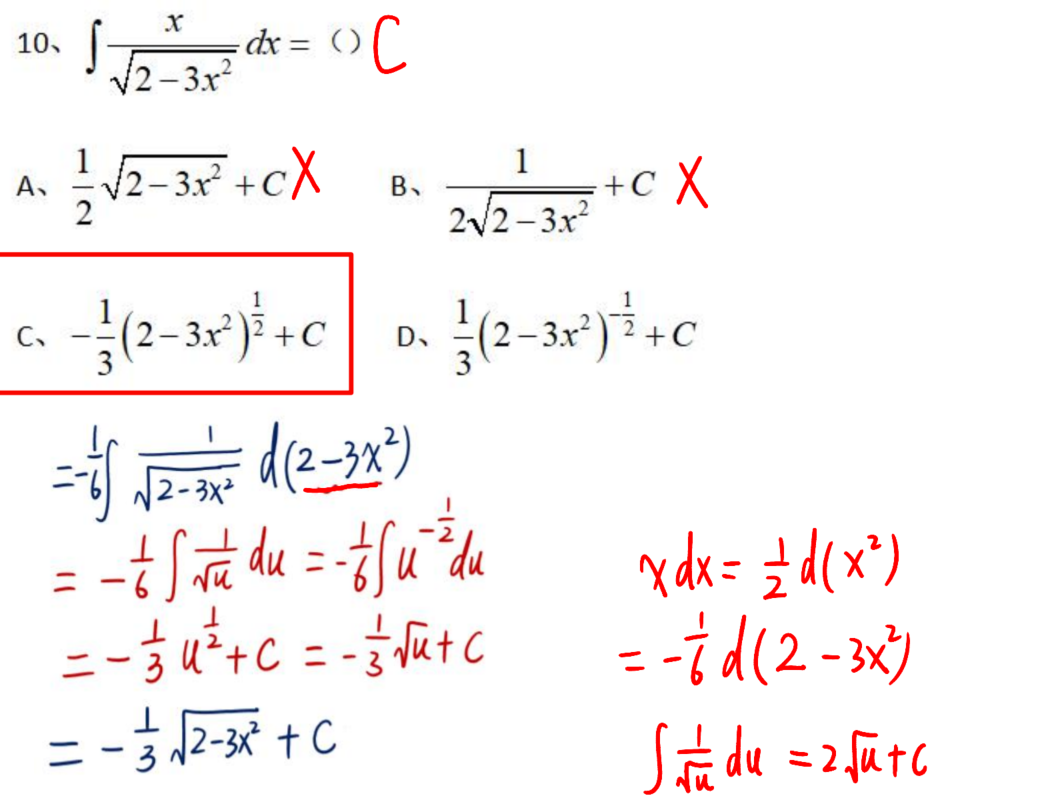 10、∫ x/√(2−3x²) dx = （） C
A、 1/2 √(2−3x²) + C X B、 1/(2√(2−3x²)) + C X
C、 −1/3 (2−3x²)^(1/2) + C D、 1/3 (2−3x²)^(−1/2) + C
= −1/6 ∫ 1/√(2−3x²) d(2−3x²)
= −1/6 ∫ 1/√u du = −1/6 ∫ u^(−1/2) du
= −1/3 u^(1/2) + C = −1/3 √u + C
= −1/3 √(2−3x²) + C
x dx = 1/2 d(x²)
= −1/6 d(2−3x²)
∫ 1/√u du = 2√u + C